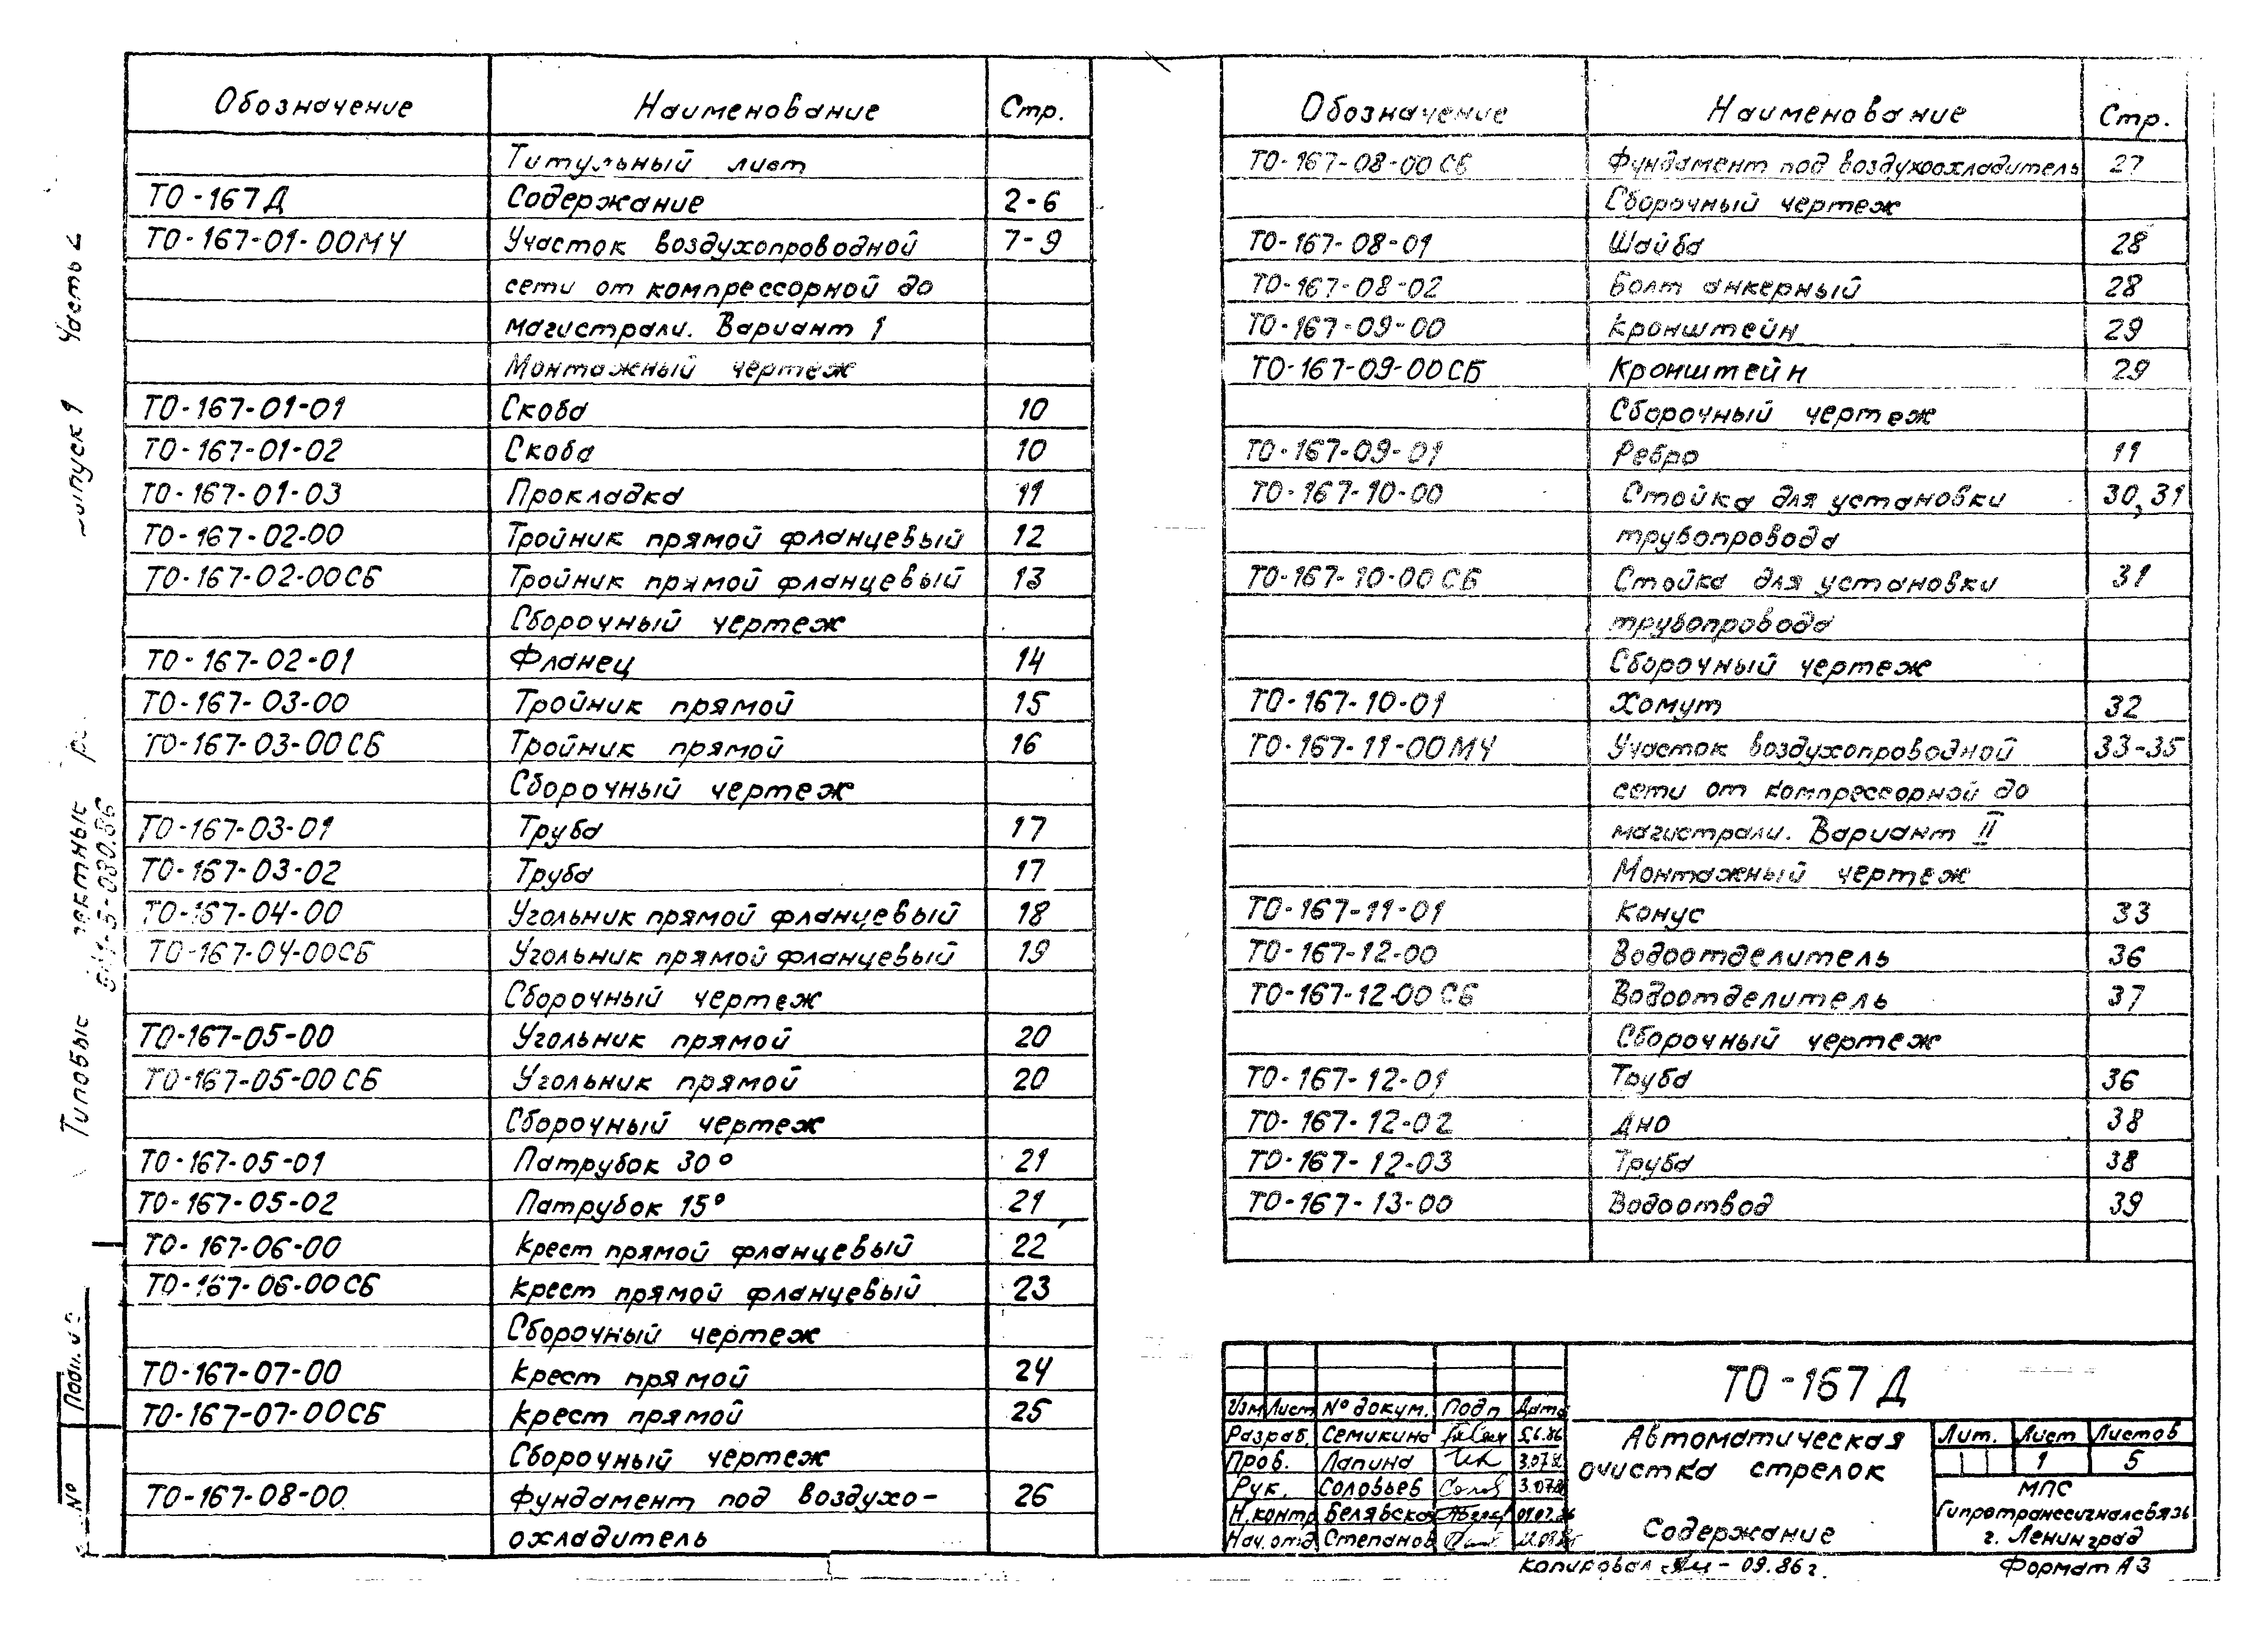 Обозначение Наименование Стр.
Титульный лист
ТО-167Д Содержание 2-6
ТО-167-01-00МЧ Участок воздухопроводной 7-9
сети от компрессорной до
магистрали. Вариант 1
Монтажный чертеж
ТО-167-01-01 Скоба 10
ТО-167-01-02 Скоба 10
ТО-167-01-03 Прокладка 11
ТО-167-02-00 Тройник прямой фланцевый 12
ТО-167-02-00СБ Тройник прямой фланцевый 13
Сборочный чертеж
ТО-167-02-01 Фланец 14
ТО-167-03-00 Тройник прямой 15
ТО-167-03-00СБ Тройник прямой 16
Сборочный чертеж
ТО-167-03-01 Труба 17
ТО-167-03-02 Труба 17
ТО-167-04-00 Угольник прямой фланцевый 18
ТО-167-04-00СБ Угольник прямой фланцевый 19
Сборочный чертеж
ТО-167-05-00 Угольник прямой 20
ТО-167-05-00СБ Угольник прямой 20
Сборочный чертеж
ТО-167-05-01 Патрубок 30° 21
ТО-167-05-02 Патрубок 15° 21
ТО-167-06-00 Крест прямой фланцевый 22
ТО-167-06-00СБ Крест прямой фланцевый 23
Сборочный чертеж
ТО-167-07-00 Крест прямой 24
ТО-167-07-00СБ Крест прямой 25
Сборочный чертеж
ТО-167-08-00 Фундамент под воздухо- 26
охладитель
Обозначение Наименование Стр.
ТО-167-08-00СБ Фундамент под воздухоохладитель 27
Сборочный чертеж
ТО-167-08-01 Шайба 28
ТО-167-08-02 Болт анкерный 28
ТО-167-09-00 Кронштейн 29
ТО-167-09-00СБ Кронштейн 29
Сборочный чертеж
ТО-167-09-01 Ребро 11
ТО-167-10-00 Стойка для установки 30,31
трубопровода
ТО-167-10-00СБ Стойка для установки 31
трубопровода
Сборочный чертеж
ТО-167-10-01 Хомут 32
ТО-167-11-00МЧ Участок воздухопроводной 33-35
сети от компрессорной до
магистрали. Вариант II
Монтажный чертеж
ТО-167-11-01 Конус 33
ТО-167-12-00 Водоотделитель 36
ТО-167-12-00СБ Водоотделитель 37
Сборочный чертеж
ТО-167-12-01 Труба 36
ТО-167-12-02 Дно 38
ТО-167-12-03 Труба 38
ТО-167-13-00 Водоотвод 39
ТО-167Д
Изм Лист № докум. Подп Дата
Разраб. Семикина 5.6.86
Пров. Лапина
Рук. Соловьев
Н.контр Белявска
Нач.отд Степанов
Автоматическая
очистка стрелок
Содержание
Лит. Лист Листов
1 5
МПС
Гипротранссигналсвязь
г. Ленинград
Копировал 09.86г.
Формат А3
Часть 2
Типовые
Подп.
№